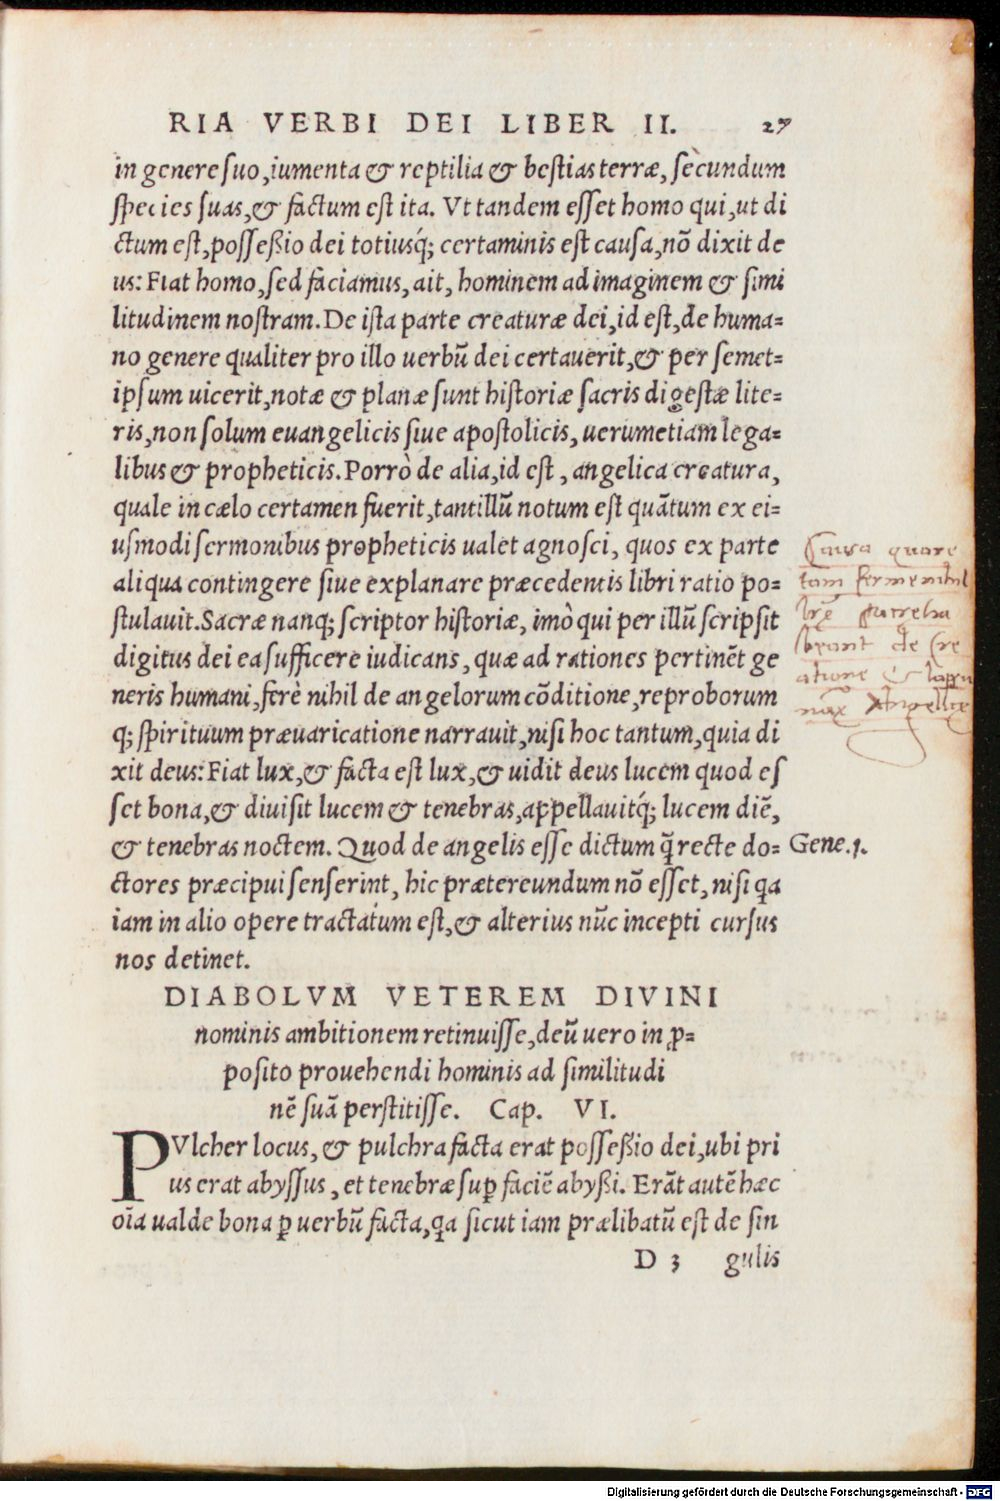 RIA VERBI DEI LIBER II. 27
in genere suo, iumenta & reptilia & bestias terræ, secundum
species suas, & factum est ita. Vt tandem esset homo qui, ut di
ctum est, possessio dei totiusq́; certaminis est causa, nō dixit de
us: Fiat homo, sed faciamus, ait, hominem ad imaginem & simi
litudinem nostram. De ista parte creaturæ dei, id est, de huma=
no genere qualiter pro illo uerbū dei certauerit, & per semet=
ipsum uicerit, notæ & planæ sunt historiæ sacris digestæ lite=
ris, non solum euangelicis siue apostolicis, uerumetiam lega=
libus & propheticis. Porrò de alia, id est, angelica creatura,
quale in cælo certamen fuerit, tantillū notum est quātum ex ei=
usmodi sermonibus propheticis ualet agnosci, quos ex parte
aliqua contingere siue explanare præcedentis libri ratio po=
stulauit. Sacræ nanq; scriptor historiæ, imò qui per illū scripsit
digitus dei ea sufficere iudicans, quæ ad rationes pertinēt ge
neris humani, ferè nihil de angelorum cōditione, reproborum
q; spirituum præuaricatione narrauit, nisi hoc tantum, quia di
xit deus: Fiat lux, & facta est lux, & uidit deus lucem quod es
set bona, & diuisit lucem & tenebras, appellauitq́; lucem diē,
& tenebras noctem. Quod de angelis esse dictum q̄ recte do= Gene.1.
ctores præcipui senserint, hic prætereundum nō esset, nisi qa
iam in alio opere tractatum est, & alterius nūc incepti cursus
nos detinet.
DIABOLVM VETEREM DIVINI
nominis ambitionem retinuisse, deū uero in ꝓ=
posito prouehendi hominis ad similitudi
nē suā perstitisse. Cap. VI.
PVlcher locus, & pulchra facta erat possessio dei, ubi pri
us erat abyssus, et tenebræ suꝑ faciē abyssi. Erāt autē hæc
oīa ualde bona ꝑ uerbū facta, qa sicut iam prælibatū est de sin
D 3 gulis
Causa quare
tam
de Cre
atione &
Digitalisierung gefördert durch die Deutsche Forschungsgemeinschaft - DFG